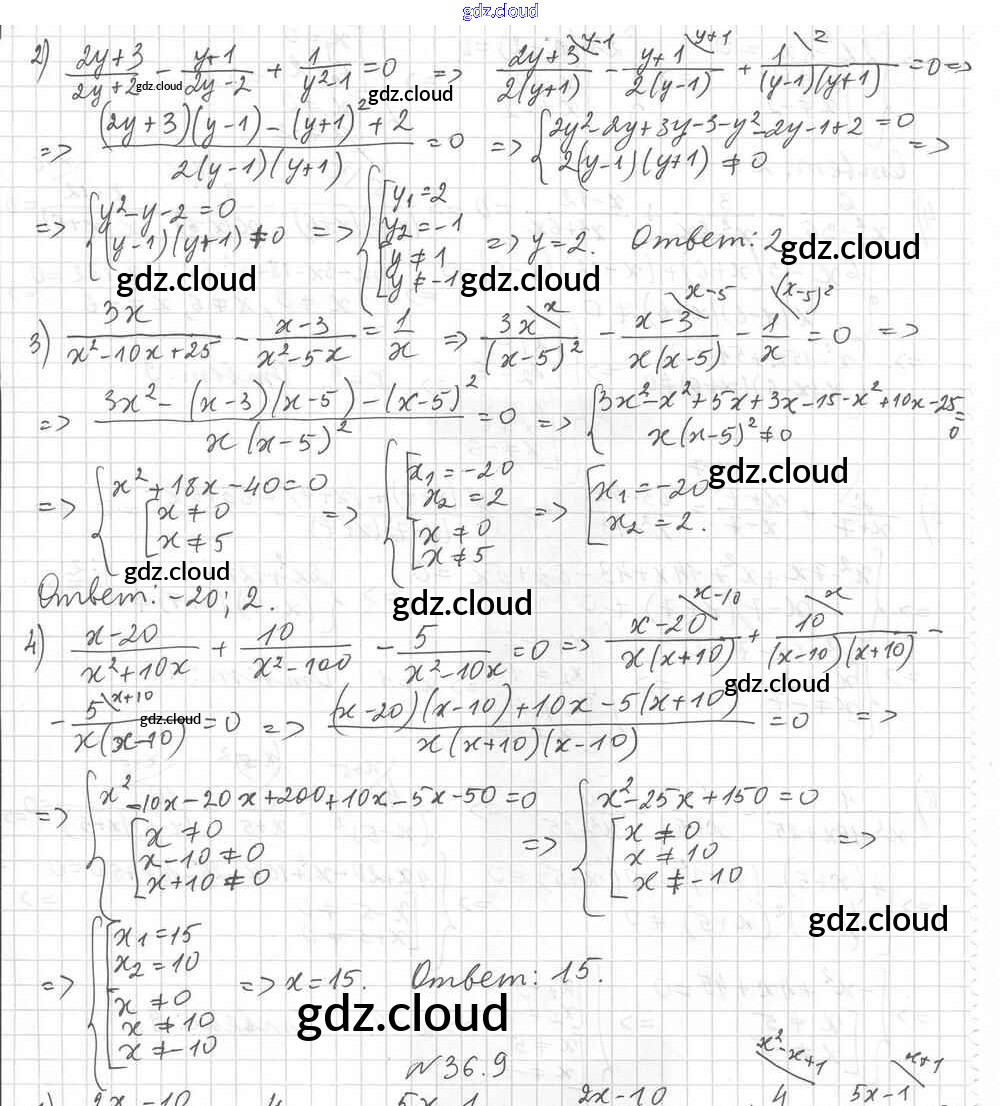 gdz.cloud
2) (2y+3)/(2y+2) - (y+1)/(2y-2) + 1/(y²-1) = 0 => (2y+3)/(2(y+1)) \y-1 - (y+1)/(2(y-1)) \y+1 + 1/((y-1)(y+1)) \2 = 0 =>
gdz.cloud gdz.cloud
=> ((2y+3)(y-1) - (y+1)² + 2)/(2(y-1)(y+1)) = 0 => { 2y²-2y+3y-3-y²-2y-1+2 = 0; 2(y-1)(y+1) ≠ 0 =>
=> { y²-y-2=0; (y-1)(y+1) ≠ 0 => { [ y₁=2; y₂=-1; [ y≠1; y≠-1 => y=2. Ответ: 2
gdz.cloud gdz.cloud gdz.cloud
3) 3x/(x²-10x+25) - (x-3)/(x²-5x) = 1/x => 3x/(x-5)² \x - (x-3)/(x(x-5)) \x-5 - 1/x \(x-5)² = 0 =>
=> (3x² - (x-3)(x-5) - (x-5)²)/(x(x-5)²) = 0 => { 3x²-x²+5x+3x-15-x²+10x-25=0; x(x-5)² ≠ 0
gdz.cloud
=> { x²+18x-40=0; [ x≠0; x≠5 => { [ x₁=-20; x₂=2; [ x≠0; x≠5 => [ x₁=-20; x₂=2.
gdz.cloud
Ответ: -20; 2.
gdz.cloud
4) (x-20)/(x²+10x) + 10/(x²-100) - 5/(x²-10x) = 0 => (x-20)/(x(x+10)) \x-10 + 10/((x-10)(x+10)) \x -
gdz.cloud
- 5/(x(x-10)) \x+10 = 0 => ((x-20)(x-10)+10x-5(x+10))/(x(x+10)(x-10)) = 0 =>
gdz.cloud
=> { x²-10x-20x+200+10x-5x-50=0; [ x≠0; x-10≠0; x+10≠0 => { x²-25x+150=0; [ x≠0; x≠10; x≠-10 =>
gdz.cloud
=> { [ x₁=15; x₂=10; [ x≠0; x≠10; x≠-10 => x=15. Ответ: 15.
gdz.cloud
№36.9
x²-x+1 x+1
2x-10 4 5x-1 2x-10 4 5x-1